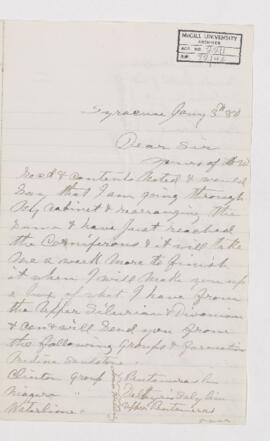 McGILL UNIVERSITY
ARCHIVES
ACC. NO.
REF.
Syracuse Jany 3rd 80
Dear Sir
Yours of
Recd & contents Noted & would
Say that I am going through
My Cabinet & rearranging the
Same & have just reached
the Corniferous & it will take
me a week more to finish
it when I will make you up
a box of what I have from
the Upper Silurian & Devonian
& can & will Send you from
the following Groups & formation
Medina Sandstone
Clinton Group
Niagara "
Waterlime "
Pentamerus
Upper Pentamerus